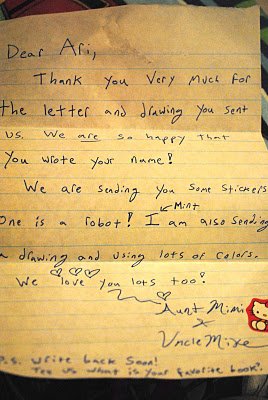 Dear Ari,
Thank you very much for
the letter and drawing you sent
us. We are so happy that
you wrote your name!
We are sending you some stickers
One is a robot! I am also sending
Mint
a drawing and using lots of colors.
We love you lots too!
Aunt Mimi
x
Uncle Mike
P.S. Write back soon!
Tell us what is your favorite book?